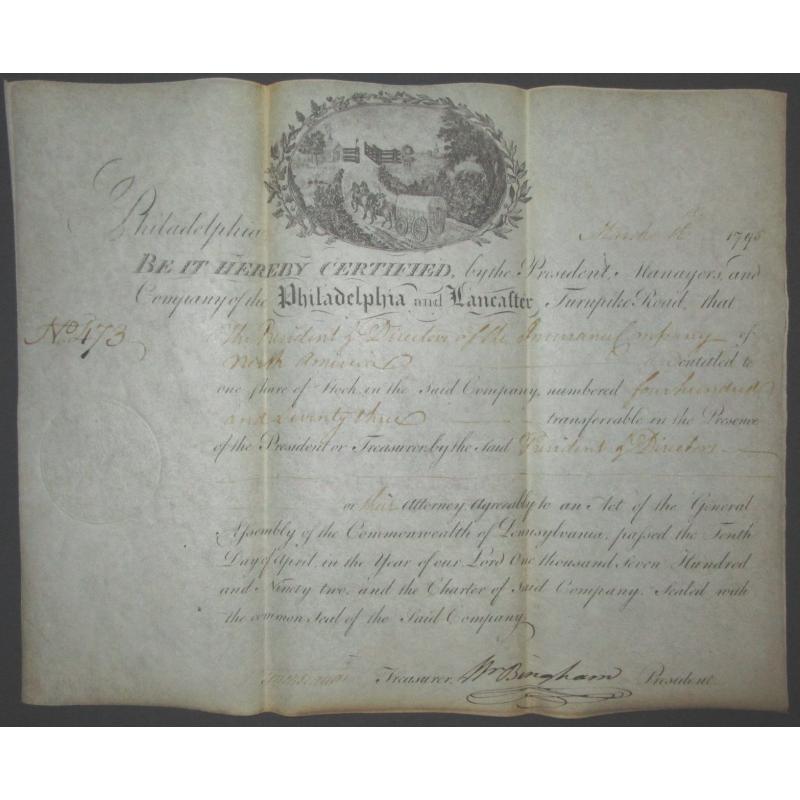 Philadelphia March 1795
BE IT HEREBY CERTIFIED, by the President, Managers, and
Company of the Philadelphia and Lancaster Turnpike Road, that
No. 473 The President & Directors of the Insurance Company of
North America entitled to
one share of Stock, in the said Company, numbered four hundred
and seventy three transferrable in the Presence
of the President or Treasurer, by the Said President & Directors
or their Attorney, Agreeably to an Act of the General
Assembly of the Commonwealth of Pennsylvania, passed the Tenth
Day of April, in the Year of our Lord One thousand Seven Hundred
and Ninety two, and the Charter of Said Company. Sealed with
the common Seal of the Said Company.
Treasurer, Wm Bingham President